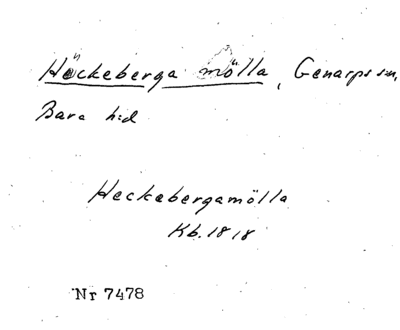 Häckeberga mölla, Genarps sn,
Bara hd
Heckebergamölla
Kb. 1818
Nr 7478